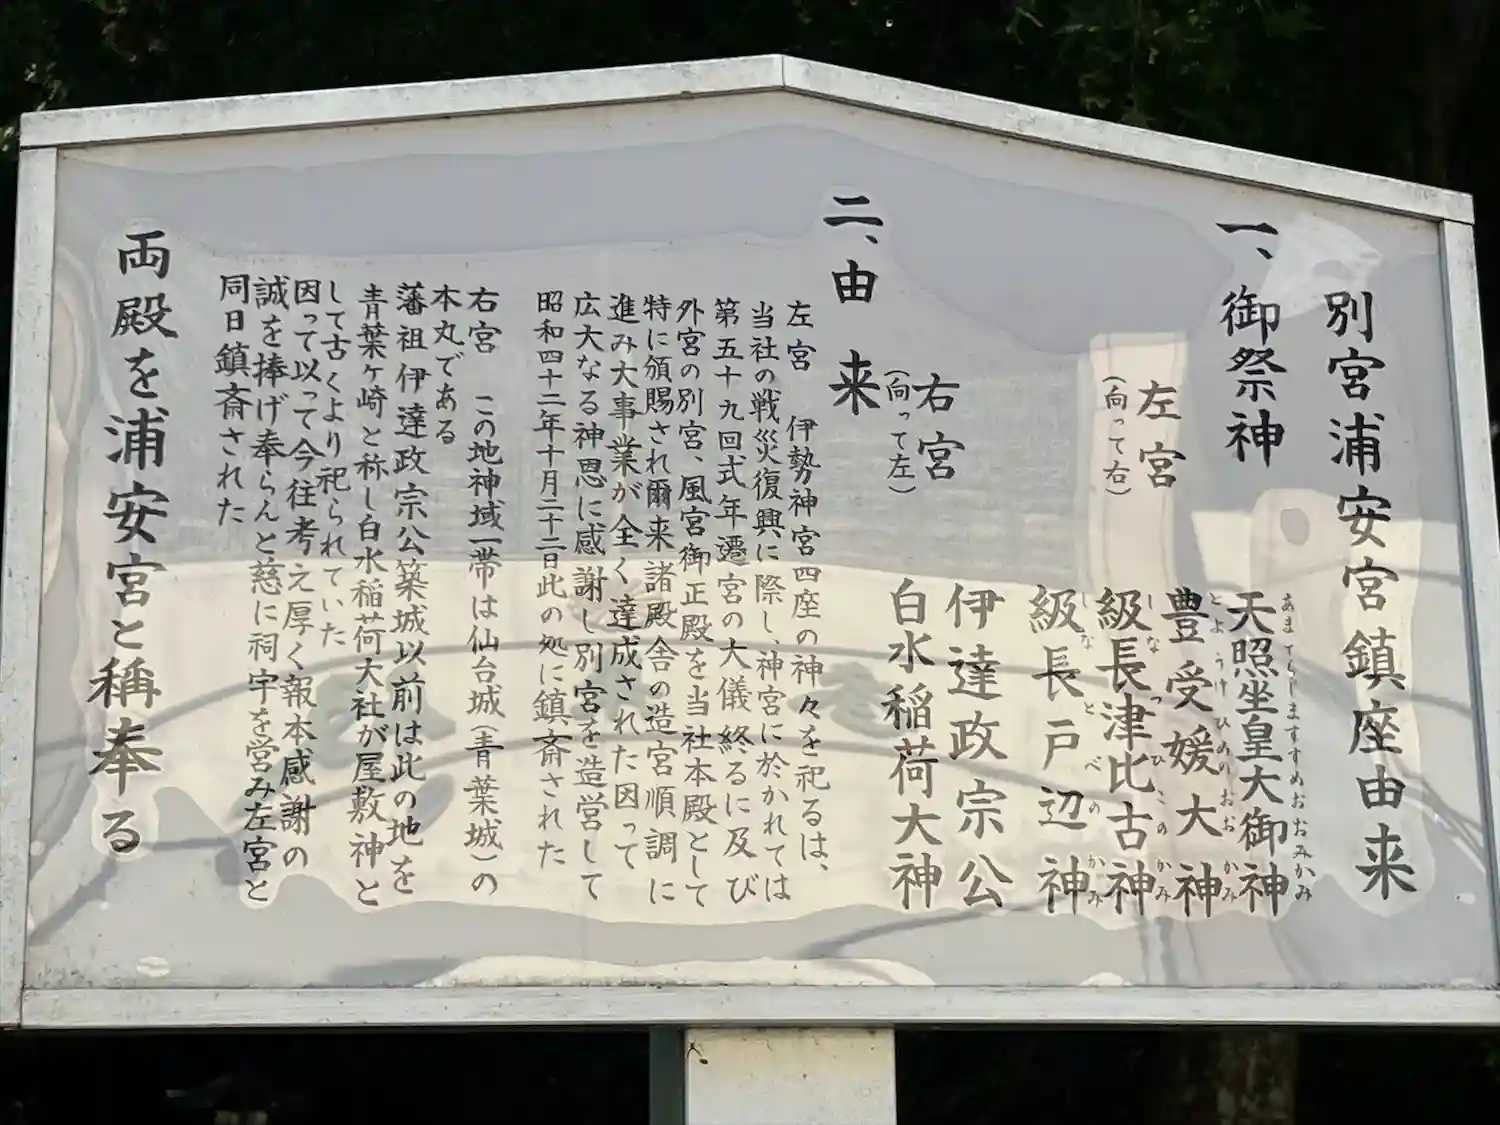 別宮浦安宮鎮座由来
一、御祭神
左宮
(向って右)
天照坐皇大御神
あまてらしますすめおおみかみ
豊受媛大神
とようけひめのおおかみ
級長津比古神
しなつひこのかみ
級長戸辺神
しなとべのかみ
右宮
(向って左)
伊達政宗公
白水稲荷大神
二、由来
左宮 伊勢神宮四座の神々を祀るは、
当社の戦災復興に際し、神宮に於かれては
第五十九回式年遷宮の大儀終るに及び
外宮の別宮、風宮御正殿を当社本殿として
特に頒賜され爾来諸殿舎の造宮順調に
進み大事業が全く達成された因って
広大なる神恩に感謝し別宮を造営して
昭和四十二年十月二十二日此の処に鎮斎された
右宮 この地神域一帯は仙台城(青葉城)の
本丸である
藩祖伊達政宗公築城以前は此の地を
青葉ヶ崎と称し白水稲荷大社が屋敷神と
して古くより祀られていた
因って以って今往考え厚く報本感謝の
誠を捧げ奉らんと慈に祠宇を営み左宮と
同日鎮斎された
両殿を浦安宮と稱奉る